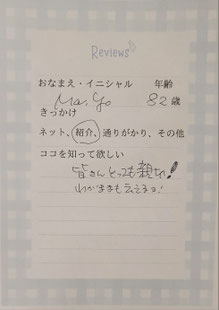 Reviews
おなまえ・イニシャル 年齢
Ma.Yo 82歳
きっかけ
ネット、紹介、通りがかり、その他
ココを知って欲しい
皆さんとっても親切!
わがままも言えるョ!